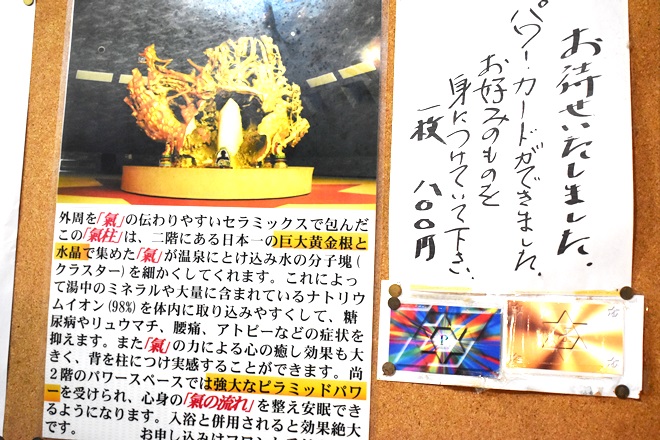 外周を「氣」の伝わりやすいセラミックスで包んだ
この「氣柱」は、二階にある日本一の巨大黄金根と
水晶で集めた「氣」が温泉にとけ込み水の分子塊(
クラスター)を細かくしてくれます。これによっ
て湯中のミネラルや大量に含まれているナトリウ
ムイオン(98%)を体内に取り込みやすくして、糖
尿病やリュウマチ、腰痛、アトピーなどの症状を
抑えます。また「氣」の力による心の癒し効果も大
きく、背を柱につけ実感することができます。尚
2階のパワースペースでは強大なピラミッドパワ
ーを受けられ、心身の「氣の流れ」を整え安眠でき
るようになります。入浴と併用されると効果絶大
です。 お申し込みはフロントで
お待せいたしました。
パワーカードができました。
お好みのものを
身につけていて下さい。
一枚 八〇〇円
P